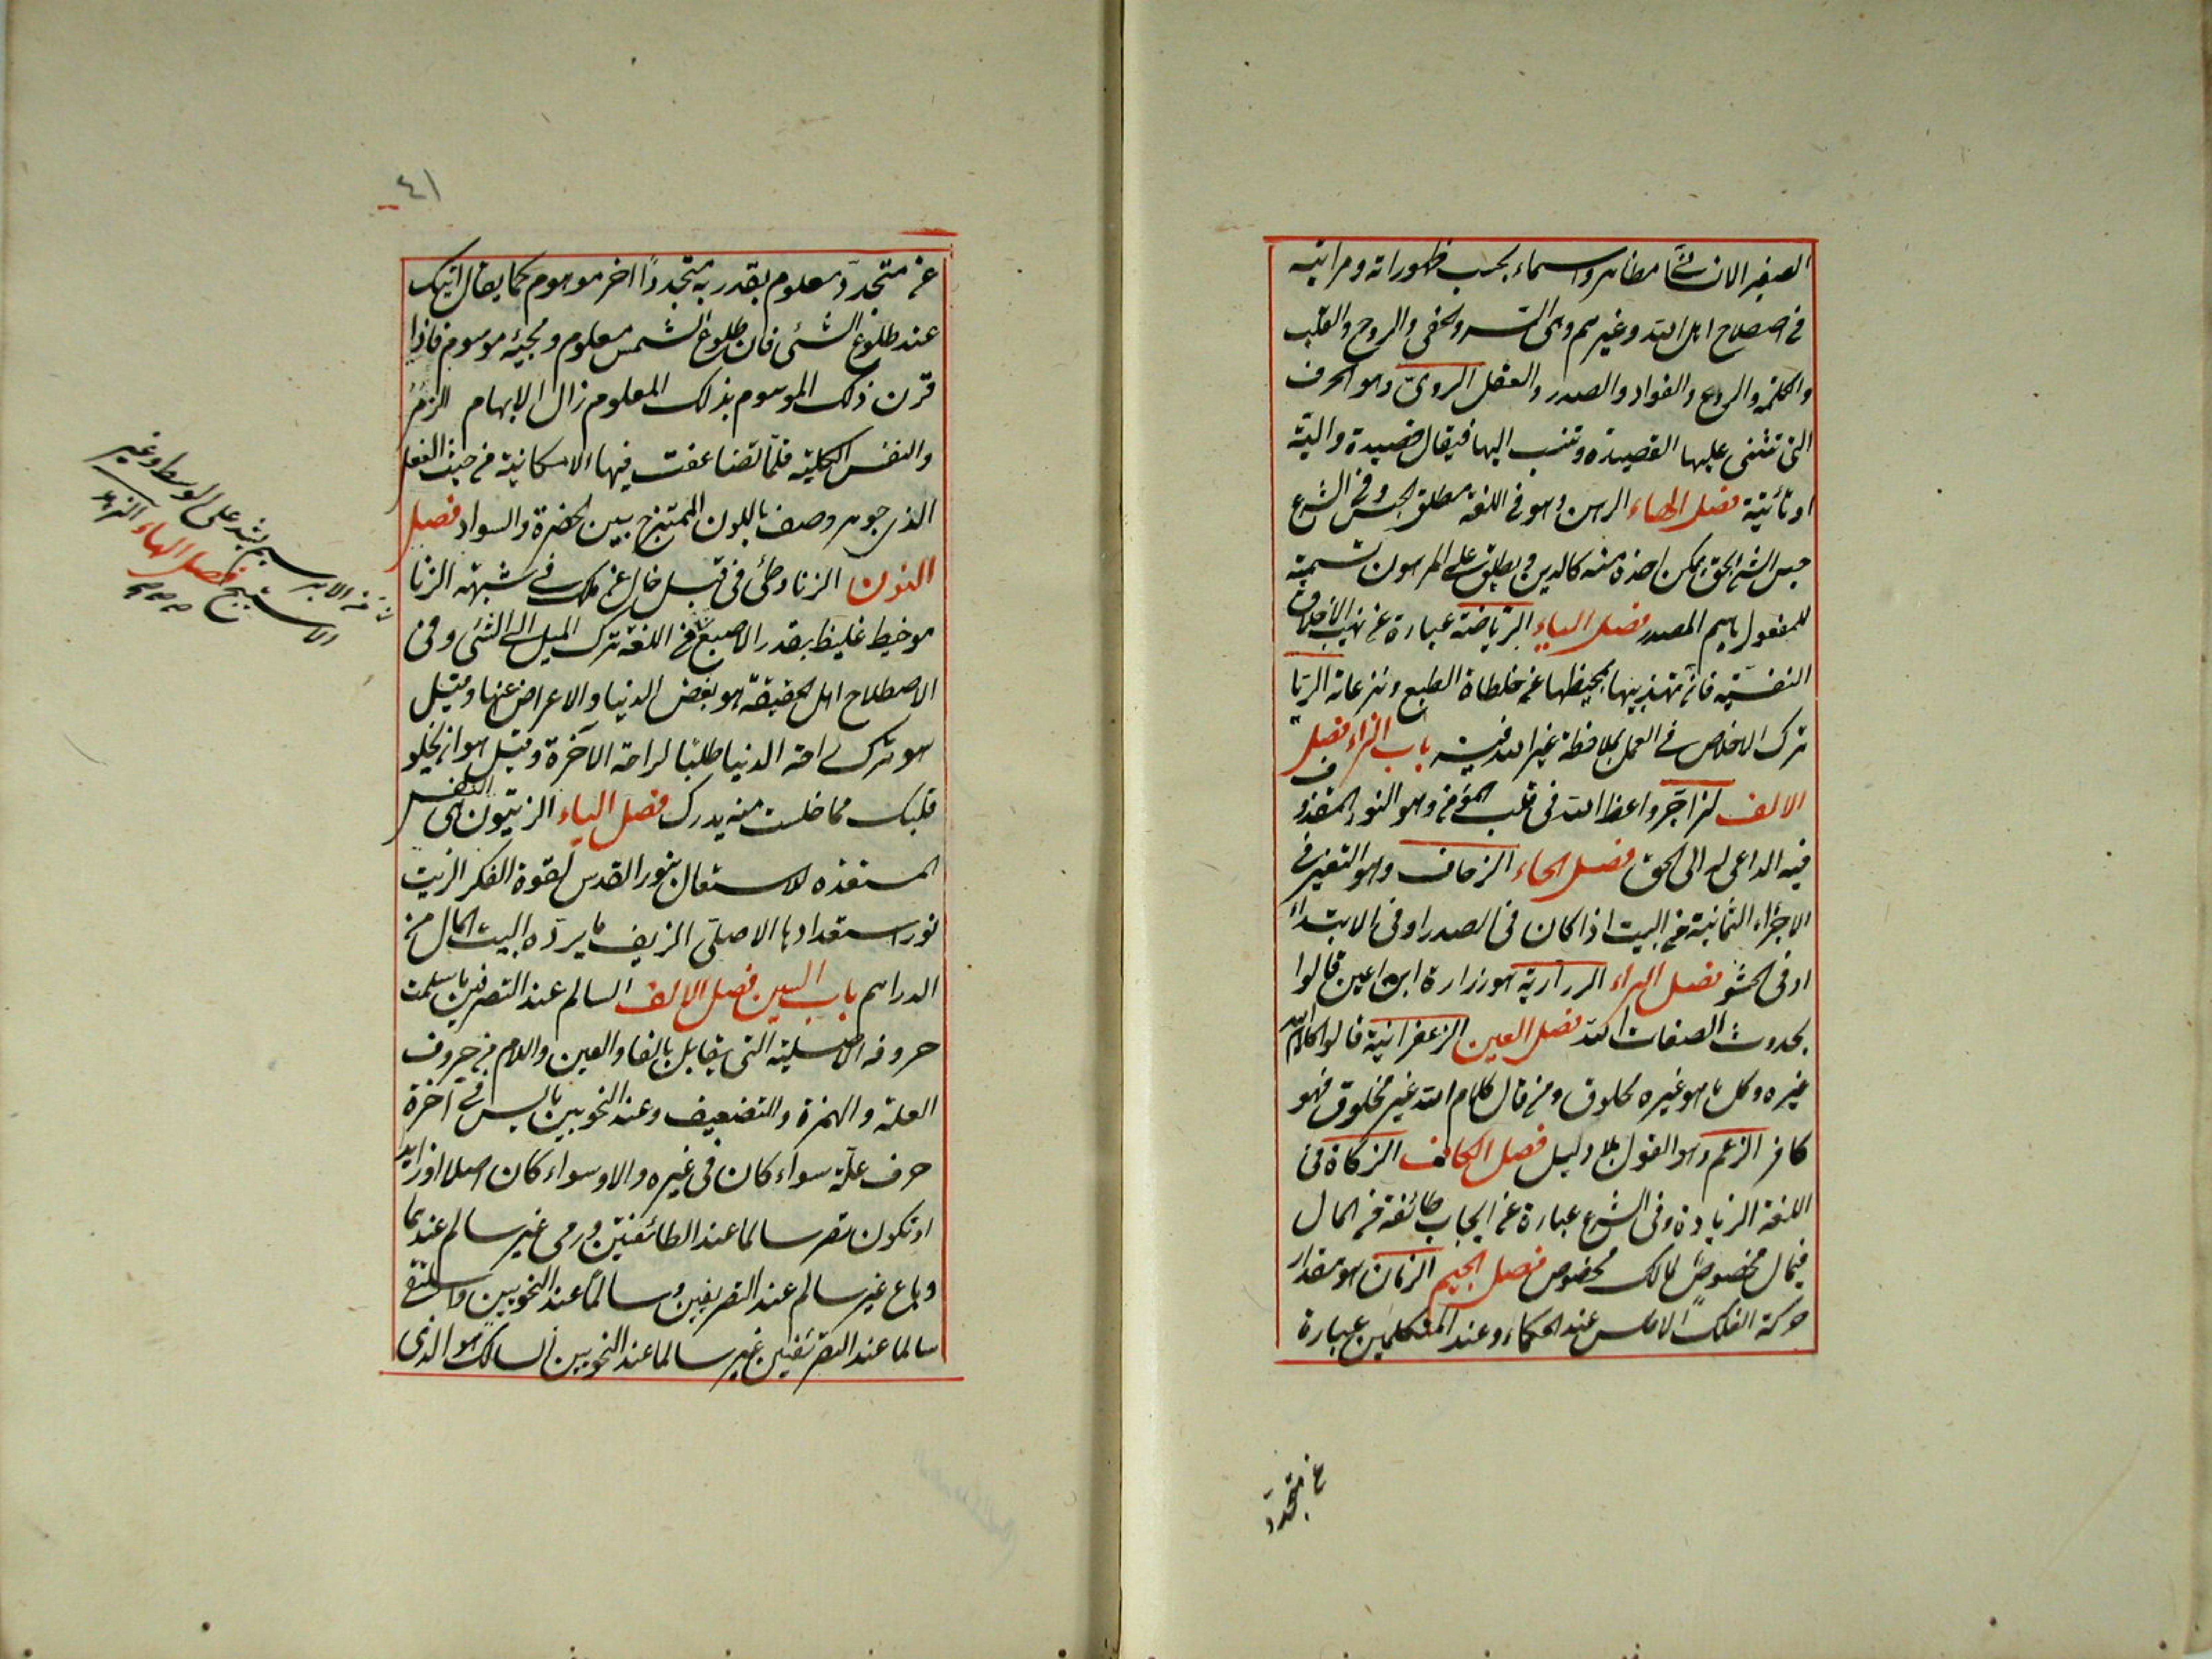 الصغير الانسانى مظاهر واسماء بحسب ظهوراته ومراتبه
فى اصطلاح اهل الله وغيرهم وهى السر والخفى والروح والقلب
والكلمة والروع والفواد والصدر والعقل الروى وهو الحرف
التى تبتنى عليها القصيدة وتنسب اليها فيقال قصيدة دالية
او تائية فصل الهاء الرهن وهو فى اللغة مطلق الحبس وفى الشرع
حبس الشئ بحق يمكن اخذه منه كالدين ويطلق على المرهون تسمية
للمفعول باسم المصدر فصل الياء الرياضة عبارة عن تهذيب الاخلاق
النفسية فان تهذيبها تمحيظها عن خلطاة الطبع ونزعاته الريا
ترك الاخلاص فى العمل بملاحظة غير الله فيه باب الزاء فصل
الالف الزاجر واعظ الله فى قلب المؤمن وهو النور المقذوف
فيه الداعى له الى الحق فصل الحاء الزحاف وهو التغير فى
الاجزاء الثمانية من البيت اذا كان فى الصدر او فى الابتداء
او فى الحشو فصل الراء الزرارية هو زرارة ابن اعين قالوا
بحدوث الصفات الله فصل العين الزعفرانية قالوا كلام الله
غيره وكل ما هو غيره مخلوق ومن قال كلام الله غير مخلوق فهو
كافر الزعم وهو القول بلا دليل فصل الكاف الزكاة فى
اللغة الزيادة وفى الشرع عبارة عن ايجاب طائفة من المال
فى مال مخصوص لمالك مخصوص فصل الجيم الزمان هو مقدار
حركة الفلك الاطلس عند الحكماء وعند المتكلمين عبارة
عن متجدد
٤١
عن متجدد معلوم يقدر به متجددا اخر موهوم كما يقال اتيك
عند طلوع الشمس فان طلوع الشمس معلوم ومجيئه موهوم فاذا
قرن ذلك الموهوم بذلك المعلوم زال الابهام الزمرد
والنفس الكلية فلما تضاعفت فيها الامكانية من حيث العقل
الذى جوهر وصف باللون الممتزج بين الخضرة والسواد فصل
النون الزنا وطئ فى قبل خال عن ملك فى شبهة الزنا
هو خيط غليظ بقدر الاصبع فى اللغة ترك الميل الى الشئ وفى
الاصطلاح اهل الحقيقة هو بغض الدنيا والاعراض عنها وقيل
هو ترك راحة الدنيا طلبا لراحة الآخرة وقيل هو ان يخلو
قلبك مما خلت منه يدرك فصل الياء الزيتون هى النفس
المستعدة للاشتعال بنور القدس لقوة الفكر الزيت
نور استعدادها الاصلى الزيف ما يرده البيت المال من
الدراهم باب السين فصل الالف السالم عند التصرفين ما سلمت
حروفه الاصلية التى يقابل بالفا والعين واللام من حروف
العلة والهمزة والتضعيف وعند النحويين ما ليس فى آخره
حرف علة سواء كان فى غيره والا وسواء كان اصلا او زايد
او تكون نصر سالما عند الطائفتين ورمى غير سالم عندهما
وباع غير سالم عند التصريفين وسالما عند النحويين واسلنقى
سالما عند التصرئفين غير سالما عند النحويين السالك هو الذى
من الابر يشد على الوسط وغير
الابريسم فصل الهاء الزهد